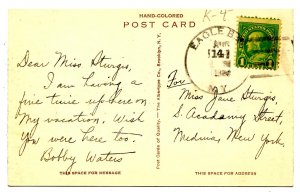 HAND-COLORED
POST CARD
K-4
EAGLE B
AUG
14
N.Y.
1
Dear Miss Sturgis,
I am having a
fine time up here on
my vacation. Wish
you were here too.
Bobby Waters
THIS SPACE FOR MESSAGE
Post Cards of Quality. — The Albertype Co., Brooklyn, N.Y.
For
Miss Jane Sturgis,
S. Academy Street,
Medina, New York.
THIS SPACE FOR ADDRESS